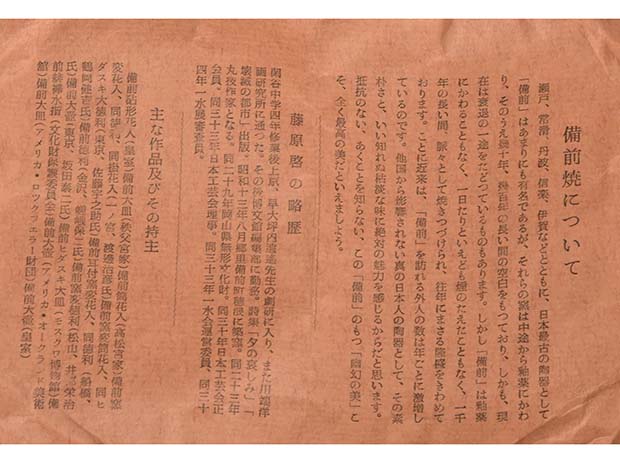 備前焼について
瀬戸、常滑、丹波、信楽、伊賀などとともに、日本最古の陶器として
「備前」はあまりにも有名であるが、それらの窯は中途から釉薬にかわ
り、そのうえ幾十年、幾百年の長い間の空白をもつており、しかも、現
在は衰退の一途をたどつているものもあります。しかし「備前」は釉薬
にかわることもなく、一日たりといえども煙のたえたこともなく、一千
年の長い間、脈々として焼きつづけられ、往年にまさる隆盛をきわめて
おります。ことに近来は、「備前」を訪れる外人の数は年ごとに激増し
ているのです。他国から影響されない真の日本人の陶器として、その素
朴さと、いい知れぬ枯淡な味に絶対の魅力を感じるからだと思います。
抵抗のない、あくことを知らない、この「備前」のもつ「幽幻の美」こ
そ、全く最高の美だといえましょう。
藤原啓の略歴
閑谷中学四年修業後上京、早大坪内逍遙先生の劇研に入り、また川端洋
画研究所に通つた。その後博文館編集部に勤務。詩集「夕の哀しみ」「
壊滅の都市」出版。昭和十三年八月郷里備前町穂浪に築窯。同二十三年
丸技作家となる。同二十九年岡山県無形文化財。同三十年日本工芸会正
会員。同三十三年日本工芸会理事。同三十三年一水会運営委員、同三十
四年一水展審査員。
主な作品及びその持主
備前砧形花入(皇室)備前大皿(秩父宮家)備前筒花入(高松宮家)備前窯
変花入、同徳利、同掛花入(一ノ宮、渡邊治彦氏)備前窯変筒花入、同ヒ
ダスキ大徳利(東京、佐藤宇之助氏)備前耳付窯変花入、同徳利(船橋、
鶴岡健吉氏)備前徳利(金沢、
氏)備前大壺(東京、坂田泰二氏)備前ヒダスキ大皿(モスクワ博物館)備
前緋襷水指(文化財保護委員会)備前大壺(アメリカ・オークランド美術
館)備前大皿(アメリカ・ロツクフエラー財団)備前大壺(皇室)